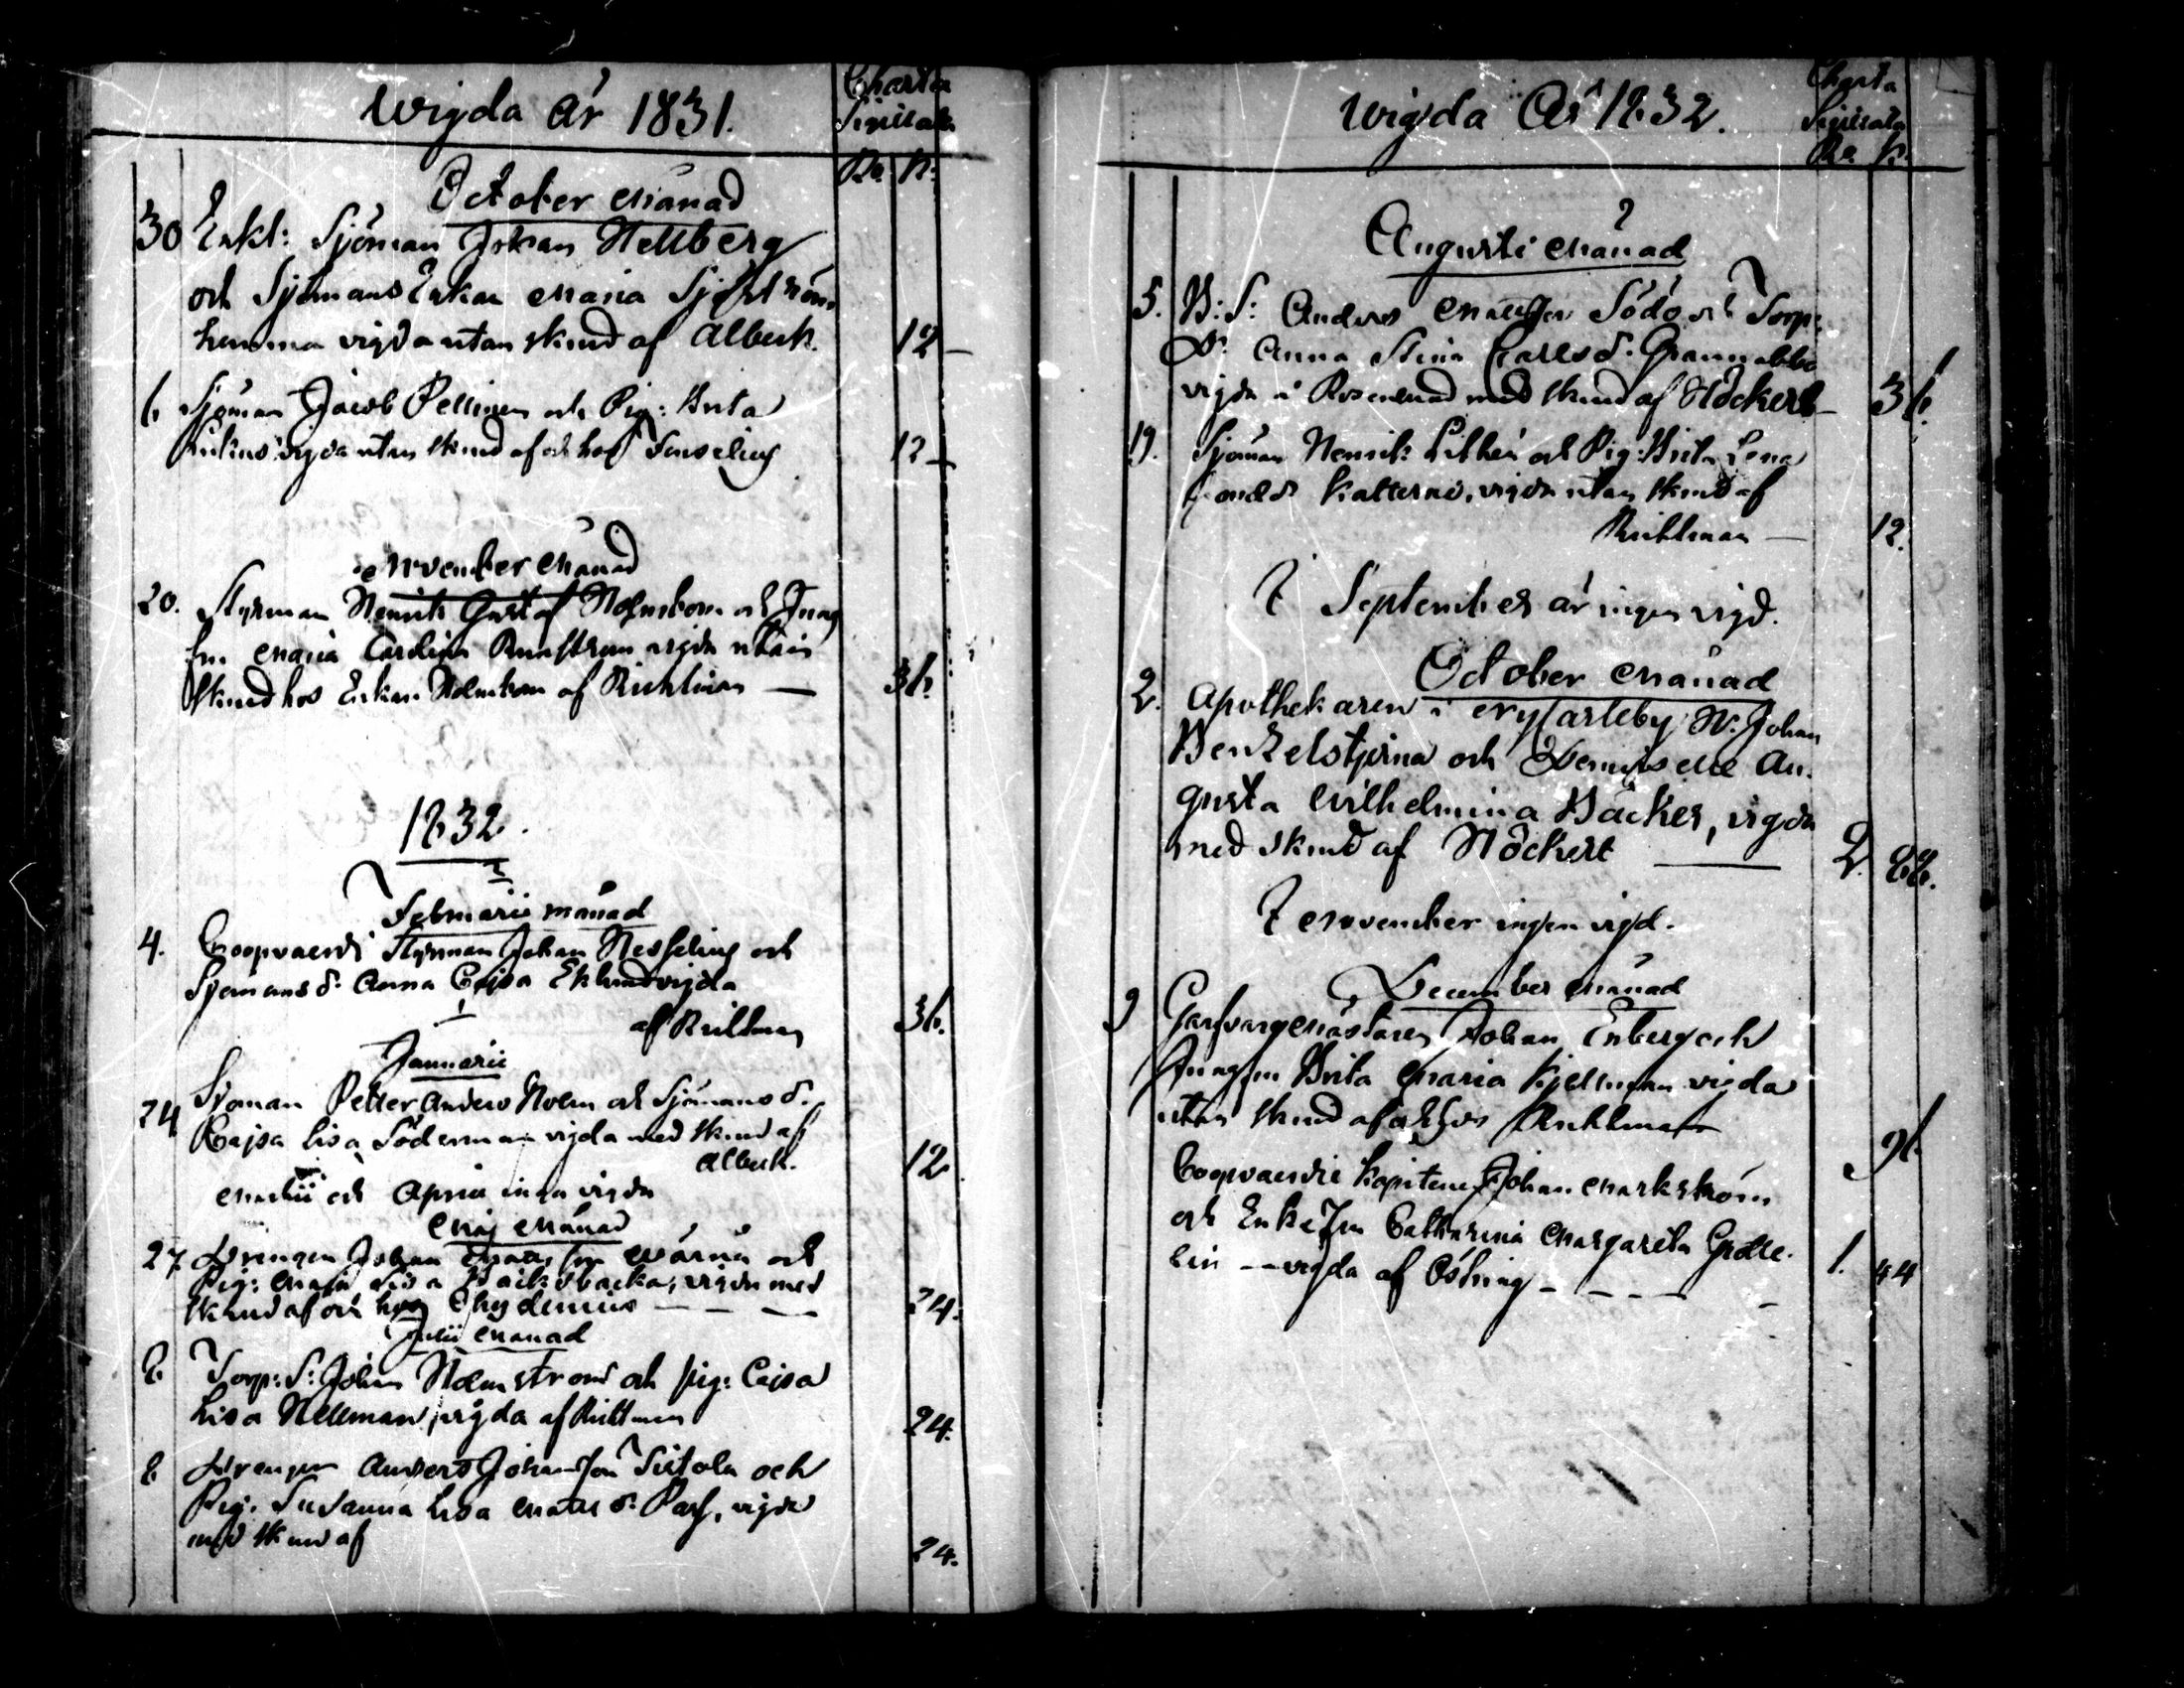 Wigda År 1831.
Charta
Sigillata
Ro. K.
October Månad
30 Enkl: Sjöman Johan Hellberg
och Sjömans Enkan Maria Sjöström
hemma vigda utan skrud af Alberk.
12
6 Sjöman Jacob Pellinen och Pig: Brita
vigda utan skrud af och hos Forseling
12
November Månad
20. Styrman Henrik Gustaf Holmbom och Jung
fru Maria Carolina vigda utan
skrud hos Enkan Holmbom af Richlman
36.
1832.
Februarii månad
4. Coopvaerdi Styrman Johan Hesseling och
Sjömans d. Anna Cajsa Eklund vigda
af Richlman
36.
Januarii
24 Sjöman Petter Anders Holm och Sjömans d.
Cajsa Lisa Söderman vigda med skrud af
Alberk.
12
Martii och April inga vigda
Maj Månad
27 Drengen Johan Matts son Wärnä och
Pig: Maja Lisa Backsbacka, vigda med
skrud af och hos Chydenius
24.
Julii Månad
8 Torp: S: Johan Holmström och pig: Cajsa
Lisa Hellman, vigda af Richlman
24.
8 Drengen Anders Johansson Sirtola och
Pig: Susanna Lisa Matts d. Parf, vigda
med skrud af
24.
Wigda År 1832.
Charta
Sigillata
Ro. K.
Augusti Månad
5. B: S: Anders Mattsson Södö och Torp:
Dr. Anna Stina Carlsd. Grannabba
vigda i Rosenlund med skrud af Höckert
36.
19. Sjöman Henrik Lithén och Pig: Brita Lena
Katternö, vigda utan skrud af
Richlman
12.
I September är ingen vigd.
October Månad
2. Apothekaren i Nycarleby Hr. Johan
Benzelstjerna och Demoiselle Au-
gusta Wilhelmina Bäcker, vigda
med skrud af Höckert
2. 88.
I November ingen vigd.
December Månad
9 Garfvaremästaren Johan Enberg och
Jungfru Brita Maria Kjellman vigda
utan skrud af och hos Richlman
96.
Coopvaerdie Kapitenen Johan Markström
och Enkefru Catharina Margareta Grotte-
lin vigda af Östring
1. 44